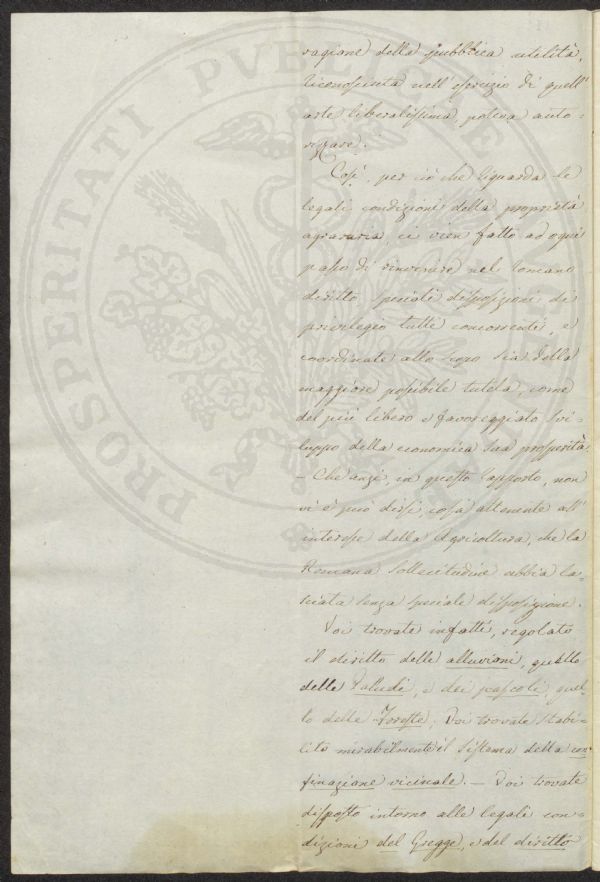 PROSPERITATI PUBLICAE
ragione della pubblica utilità,
riconosciuta nell'esercizio di quell'
arte liberalissima, poteva auto-
rizzare.
Così, per ciò che riguarda le
legali condizioni della proprietà
agraria, ci vien fatto ad ogni
passo di rinvenire nel romano
diritto speciali disposizioni di
privilegio tutte concorrenti, e
coordinate allo scopo sia della
maggiore possibile tutela, come
del più libero e favoreggiato svi-
luppo della economica sua prosperità.
– Che anzi, in questo rapporto, non
vi è, può dirsi, cosa attenente all'
interesse della Agricoltura, che la
Romana sollecitudine abbia la-
sciata senza speciale disposizione.
Voi trovate infatti, regolato
il diritto delle alluvioni, quello
delle Paludi, e dei pascoli, quel-
lo delle Foreste. Voi trovate stabi-
lito mirabilmente il sistema della con-
finazione vicinale. – Voi trovate
disposto intorno alle legali con-
dizioni del Gregge, e del diritto